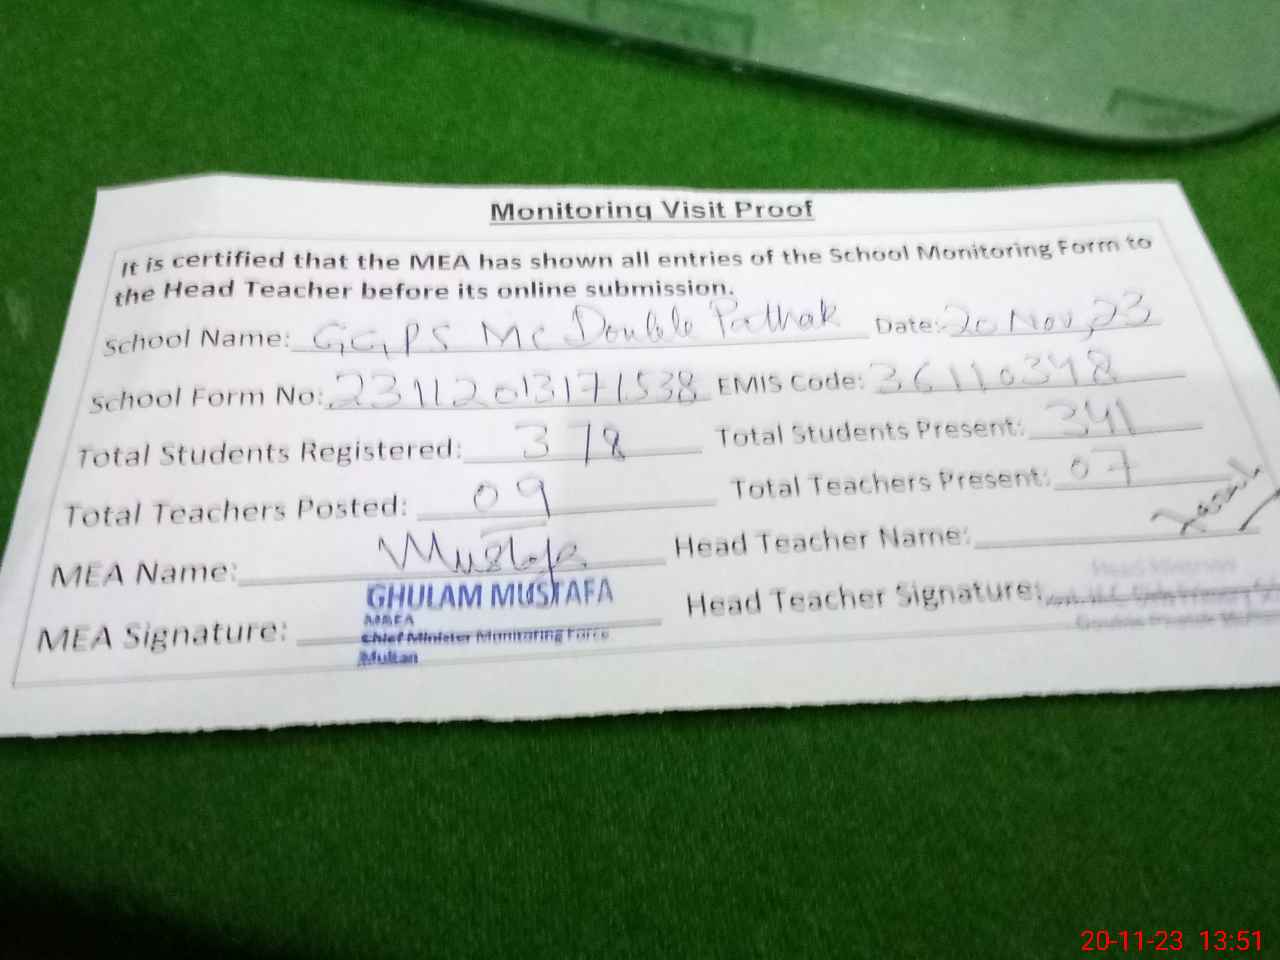 Monitoring Visit Proof
It is certified that the MEA has shown all entries of the School Monitoring Form to
the Head Teacher before its online submission.
School Name: GGPS MC Double Pathak Date: 20 Nov, 23
School Form No: 23112013171538 EMIS Code: 36110348
Total Students Registered: 378 Total Students Present: 341
Total Teachers Posted: 09 Total Teachers Present: 07
MEA Name: Mustafa Head Teacher Name:
MEA Signature: Head Teacher Signature:
GHULAM MUSTAFA
MEA
Chief Minister Monitoring Force
Multan
20-11-23 13:51